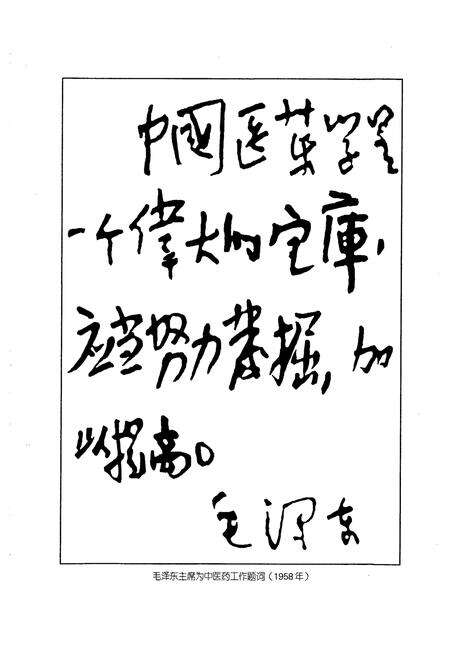 中國医药学是
一个偉大的宝庫，
应当努力发掘，加
以提高。
毛泽东
毛泽东主席为中医药工作题词（1958年）